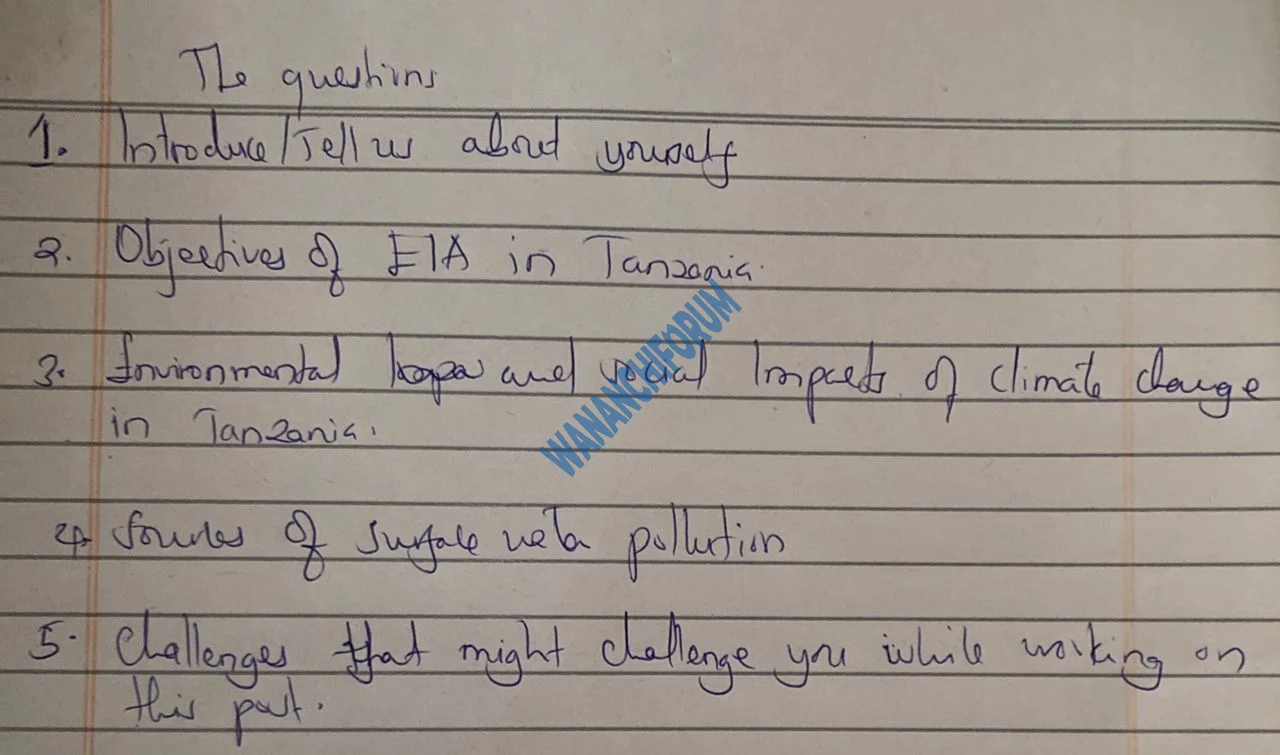 The questions
1. Introduce/Tell us about yourself
2. Objectives of EIA in Tanzania.
3. Environmental and social Impacts of climate change
in Tanzania.
4. Sources of surface water pollution
5. Challenges that might challenge you while working on
this post.
WANANCHIFORUM